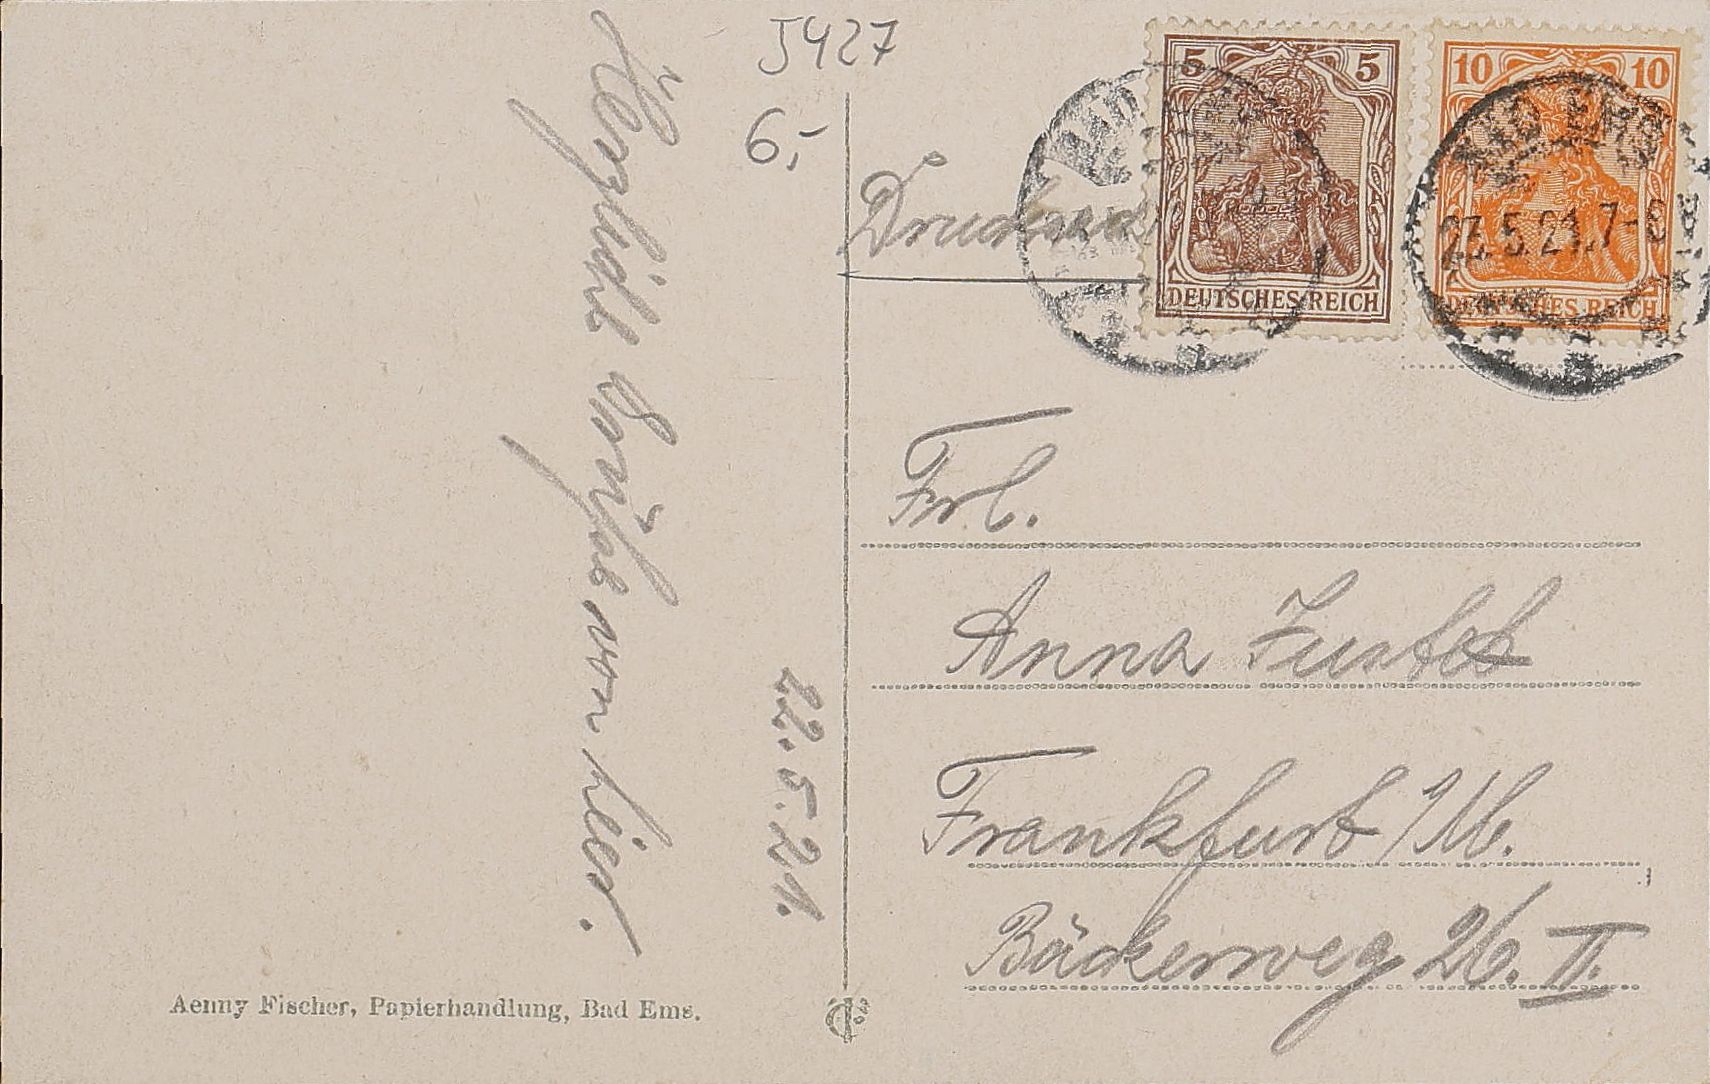 5427
6,-
Herzliche Grüße von hier.
22.5.21.
Drucksache
5 5
DEUTSCHES REICH
10 10
DEUTSCHES REICH
BAD EMS
23.5.21.7-8
Frl.
Anna
Frankfurt /M.
Bäckerweg 26. II.
Aenny Fischer, Papierhandlung, Bad Ems.